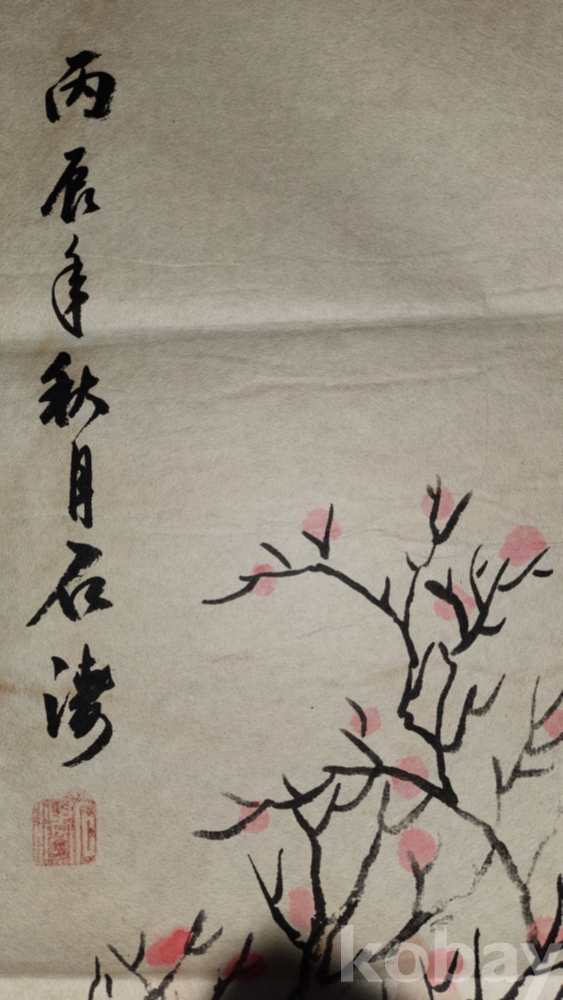 丙辰年秋月石湾
kobay